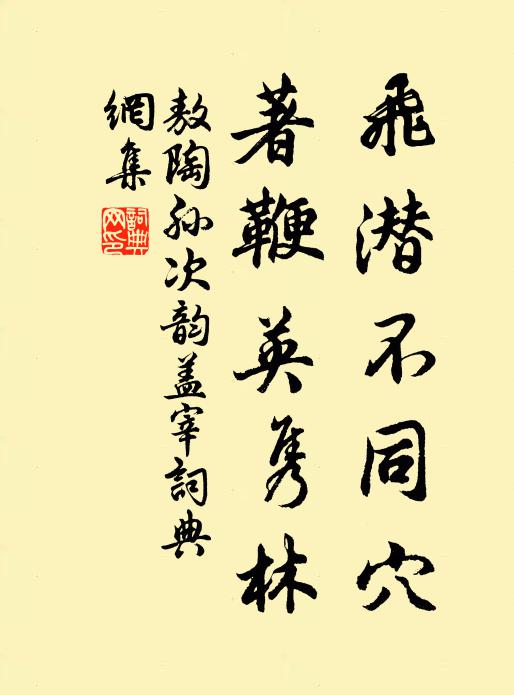 飛潜不同穴
著鞭英隽林
敖陶孙次韵盖宰詞典
網集
詞典網印